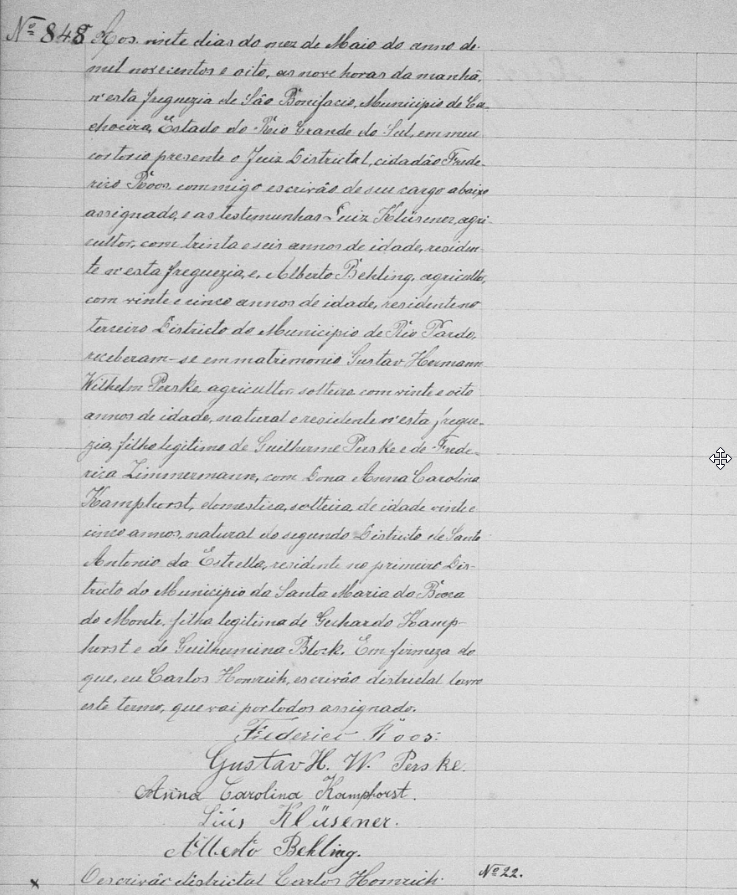 Nº 848 Aos vinte dias do mez de Maio do anno de
mil novecentos e oito, as nove horas da manhã,
n'esta freguezia de São Bonifacio, Municipio de Ca-
choeira, Estado do Rio Grande do Sul, em meu
cartorio presente o Juiz Districtal, cidadão Frede-
rico Röos, commigo escrivão de seu cargo abaixo
assignado, e as testemunhas Luiz Klüsener, agri-
cultor, com trinta e seis annos de idade, residen-
te n'esta freguezia, e, Alberto Behling, agricultor,
com vinte e cinco annos de idade, residente no
terceiro Districto do Municipio de Rio Pardo,
receberam-se em matrimonio Gustav Hermann
Wilhelm Perske, agricultor, solteiro, com vinte e oito
annos de idade, natural e residente n'esta fregue-
zia, filho legitimo de Guilherme Perske e de Frede-
rica Zimmermann, com Dona Anna Carolina
Kamphorst, domestica, solteira, de idade vinte e
cinco annos, natural do segundo Districto de Santo
Antonio da Estrella, residente no primeiro Dis-
tricto do Municipio da Santa Maria da Bocca
do Monte, filha legitima de Gerhardo Kamp-
horst e de Guilhermina Block. Em firmeza do
que, eu Carlos Homrich, escrivão districtal lavro
este termo, que vai por todos assignado.
Frederico Röos.
Gustav H. W. Perske.
Anna Carolina Kamphorst.
Luis Klüsener.
Alberto Behling.
O escrivão districtal Carlos Homrich.
Nº 22.
x